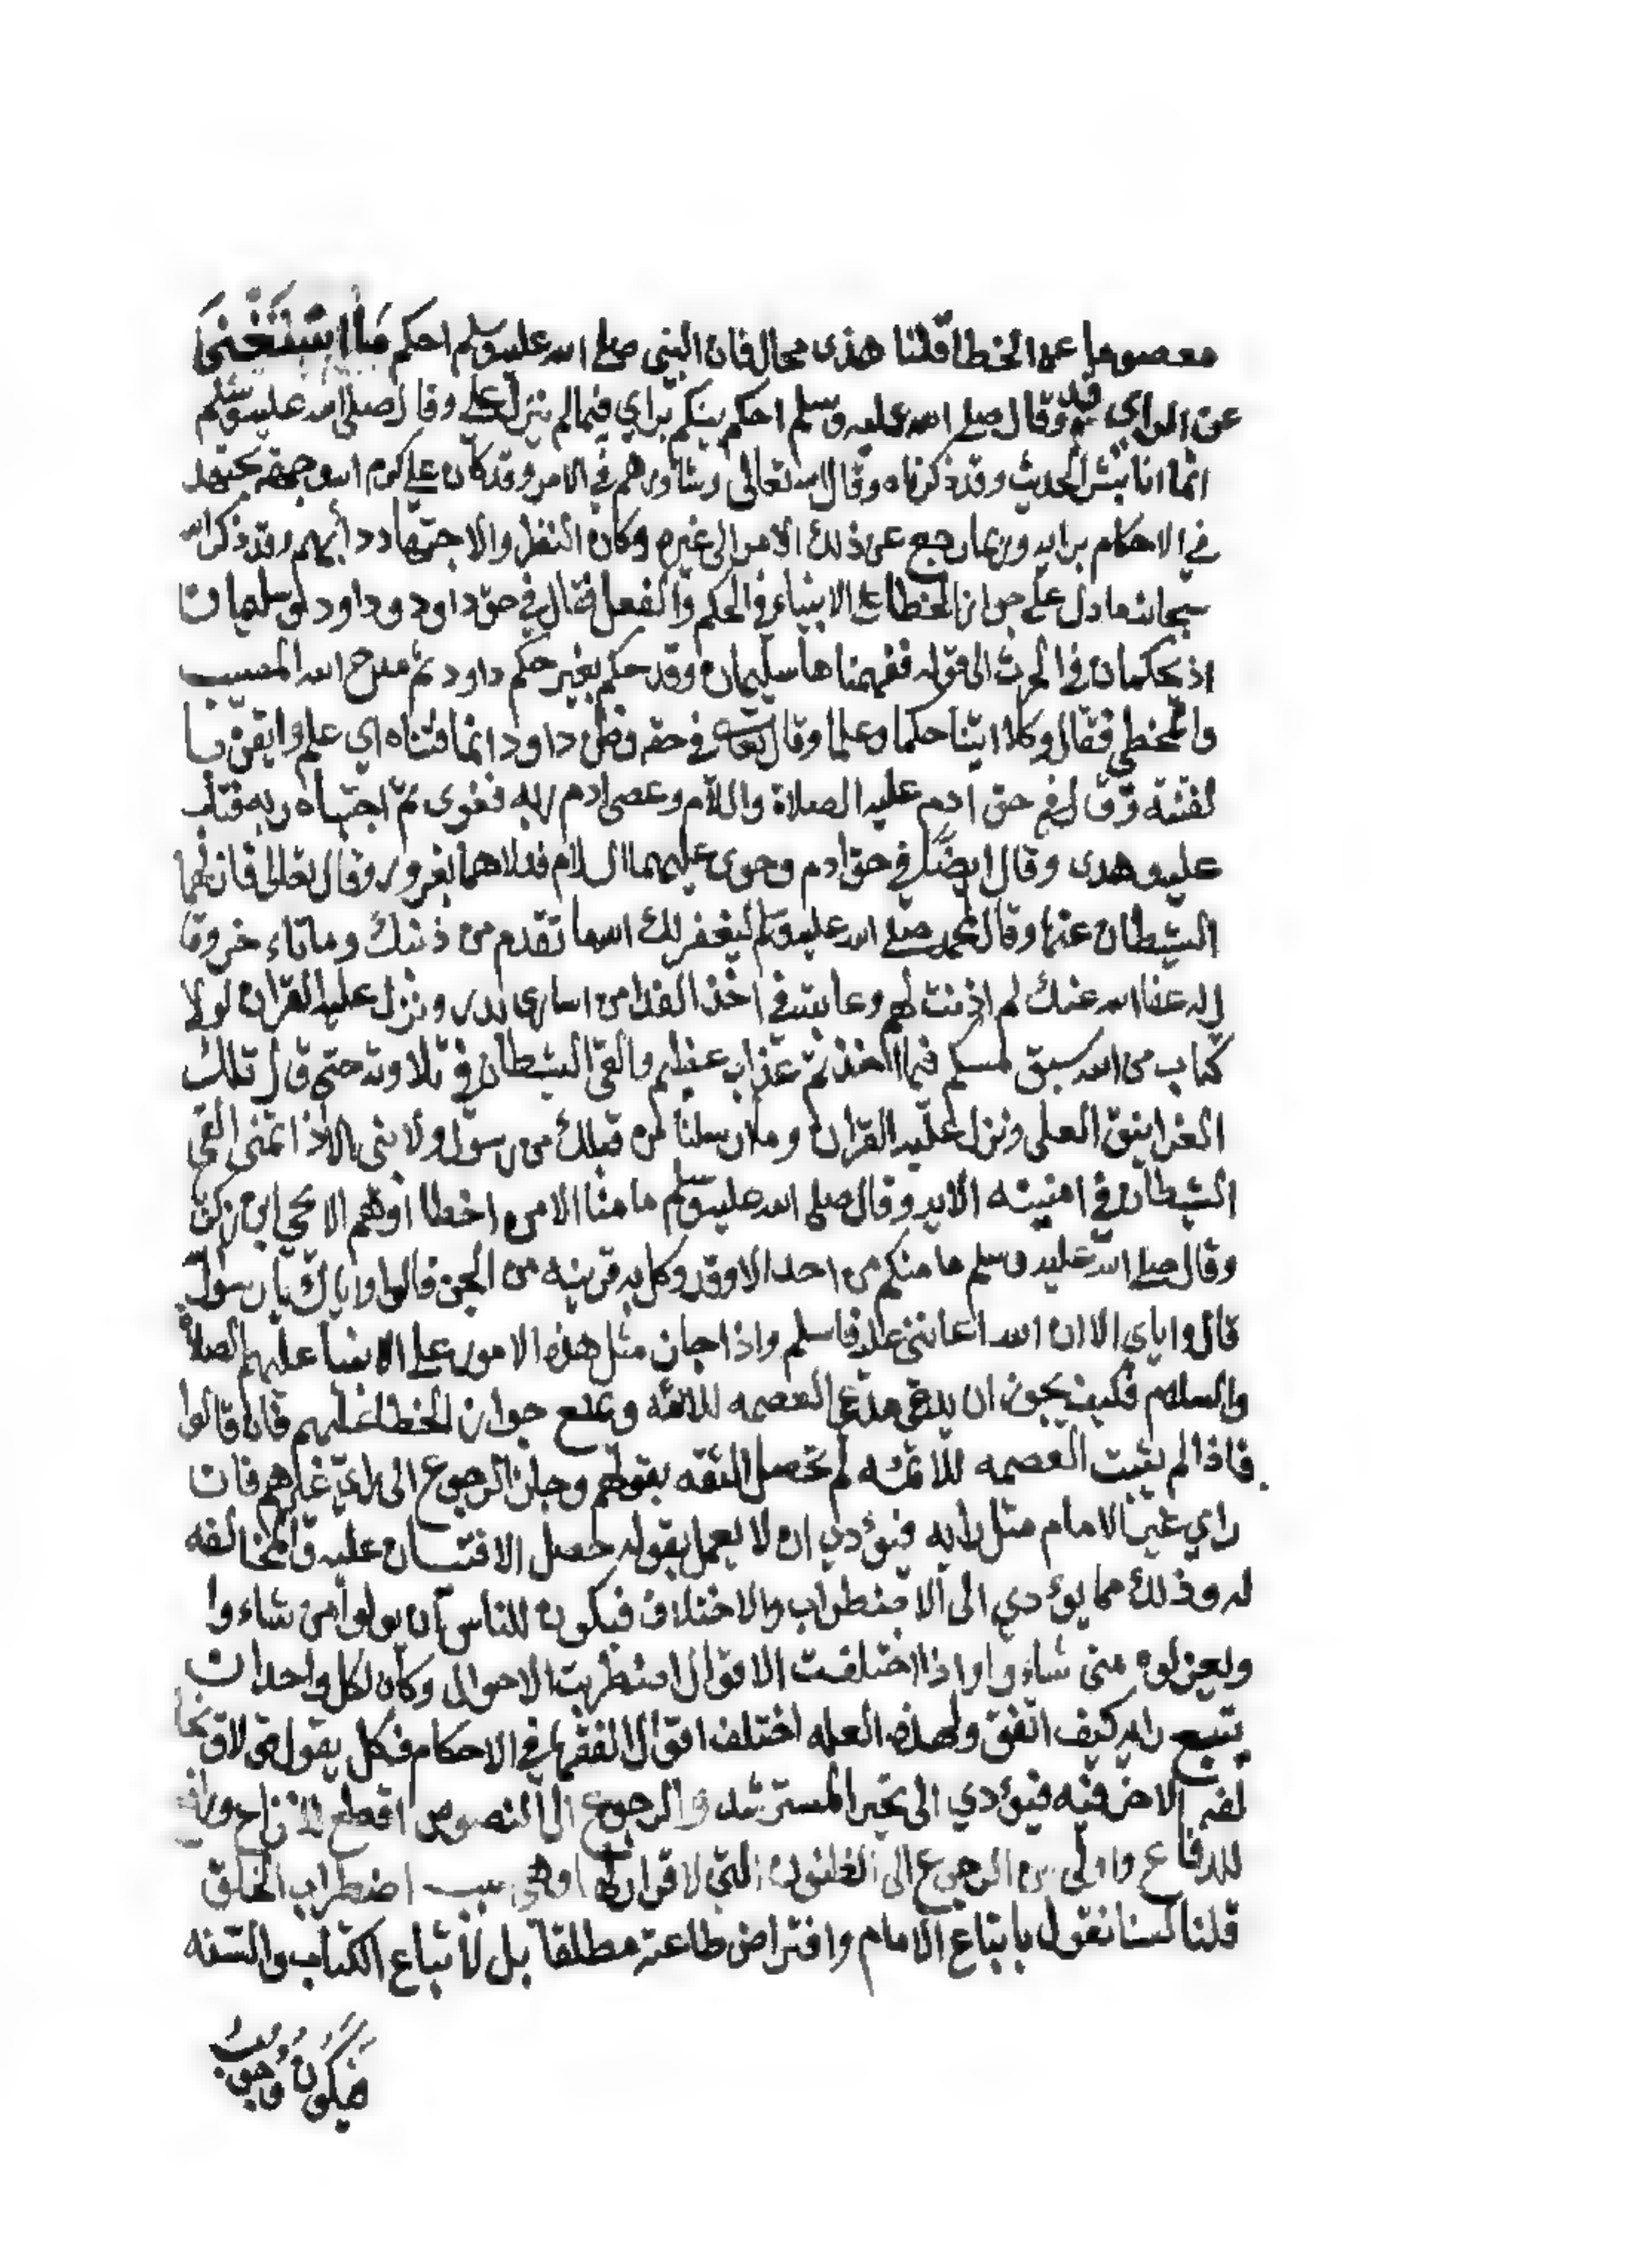 معصوما عن الخطا قلنا هذى محال فان النبى صلى الله عليه وسلم احكم ما
عن الراي قد وقال صلى الله عليه وسلم احكم بينكم براي فيما لم ينزل علي وقال صلى الله عليه وسلم
انما انا بشر الحديث وقد ذكرناه وقال الله تعالى وشاورهم في الامر وقد كان علي كرم الله وجهه يجتهد
في الاحكام برايه وربما رجع عن ذلك الامر الى غيره وكان النظر والاجتهاد دأبهم وقد ذكر الله
سبحانه ما دل على جواز الخطا على الانبياء في الحكم والفعل فقال في حق داود وداود وسليمان
اذ يحكمان في الحرث الى قوله ففهمناها سليمان وقد حكم بغير حكم داود ثم مدح الله المصيب
والمخطي فقال وكلا اتينا حكما وعلما وقال تعالى في حقه وظن داود انما فتناه اي علم وايقن
لفتنه وقال في حق ادم عليه الصلاة والسلام وعصى ادم ربه فغوى ثم اجتباه ربه فتاب
عليه وهدى وقال ايضا في حق ادم وحوى عليهما السلام فدلاهما بغرور وقال تعالى فازلهما
الشيطان عنها وقال لمحمد صلى الله عليه وسلم ليغفر لك الله ما تقدم من ذنبك وما تاخر وقا
ل له عفا الله عنك لم اذنت لهم وعاتبته في اخذ الفدا من اسارى بدر ونزل عليه القران لولا
كتاب من الله سبق لمسكم فيما اخذتم عذاب عظيم والقى الشيطان في تلاوته حتى قال تلك
الغرانيق العلى ونزل عليه القران وما ارسلنا من قبلك من رسول ولا نبي الا اذا تمنى القى
الشيطان في امنيته الايه وقال صلى الله عليه وسلم ما منا الا من اخطا او هم الا يحيى ابن زكر
وقال صلى الله عليه وسلم ما منكم من احد الا وقد وكل به قرينه من الجن قالوا واياك يا رسول
قال واياي الا ان الله اعانني عليه فاسلم واذا جاز مثل هذه الامور على الانبيا عليهم الصلاة
والسلام فكيف يجوز ان يدعي مدعي العصمه للائمه ويمنع جواز الخطا عليهم فان قالوا
فاذا لم يثبت العصمه للائمه لم تحصل الثقه بقولهم وجاز الرجوع الى راي غيرهم فان
راي غير الامام مثل رايه فيؤدي ان لا يعمل بقوله حصل الافتيات عليه والمخالفه
له وذلك مما يؤدي الى الاضطراب والاختلاف فيكون للناس ان يولوا من شاءوا
ويعزلوه متى شاءوا واذا اختلفت الاقوال اضطربت الاحوال وكان لكل واحد ان
يتبع رايه كيف اتفق ولهذه العله اختلف اقوال الفقها في الاحكام فكل يقول قولا
لغير الاخر فيه فيؤدي الى تحير المسترشد والرجوع الى النصوص اقطع للنزاع
للدفاع واولى من الرجوع الى الظنون التي لا قرار لها وهي سبب اضطراب الخلق
قلنا لسنا نقول باتباع الامام وافتراض طاعته مطلقا بل لاتباع الكتاب والسنه
فيكون وجوب